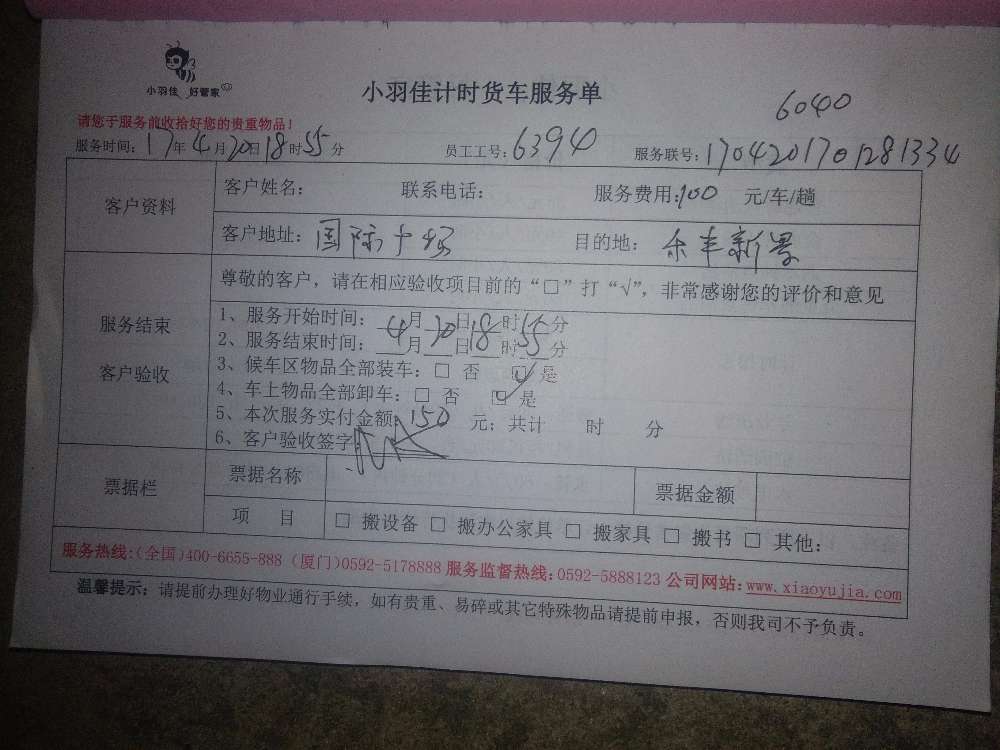 小羽佳 好管家
小羽佳计时货车服务单
6040
请您于服务前收拾好您的贵重物品！
服务时间：17年4月20日18时55分 员工工号：6394 服务联号：1704201701281334
客户资料
客户姓名： 联系电话： 服务费用：100 元/车/趟
客户地址：国际广场 目的地：禾丰新景
服务结束
客户验收
尊敬的客户，请在相应验收项目前的“□”打“√”，非常感谢您的评价和意见
1、服务开始时间：4月20日18时55分
2、服务结束时间：___月___日___时___分
3、候车区物品全部装车：□ 否 ☑ 是
4、车上物品全部卸车：□ 否 ☑ 是
5、本次服务实付金额：150 元；共计 时 分
6、客户验收签字：
票据栏
票据名称 票据金额
项 目 □ 搬设备 □ 搬办公家具 □ 搬家具 □ 搬书 □ 其他：
服务热线：(全国)400-6655-888 (厦门)0592-5178888 服务监督热线：0592-5888123 公司网站：www.xiaoyujia.com
温馨提示：请提前办理好物业通行手续，如有贵重、易碎或其它特殊物品请提前申报，否则我司不予负责。